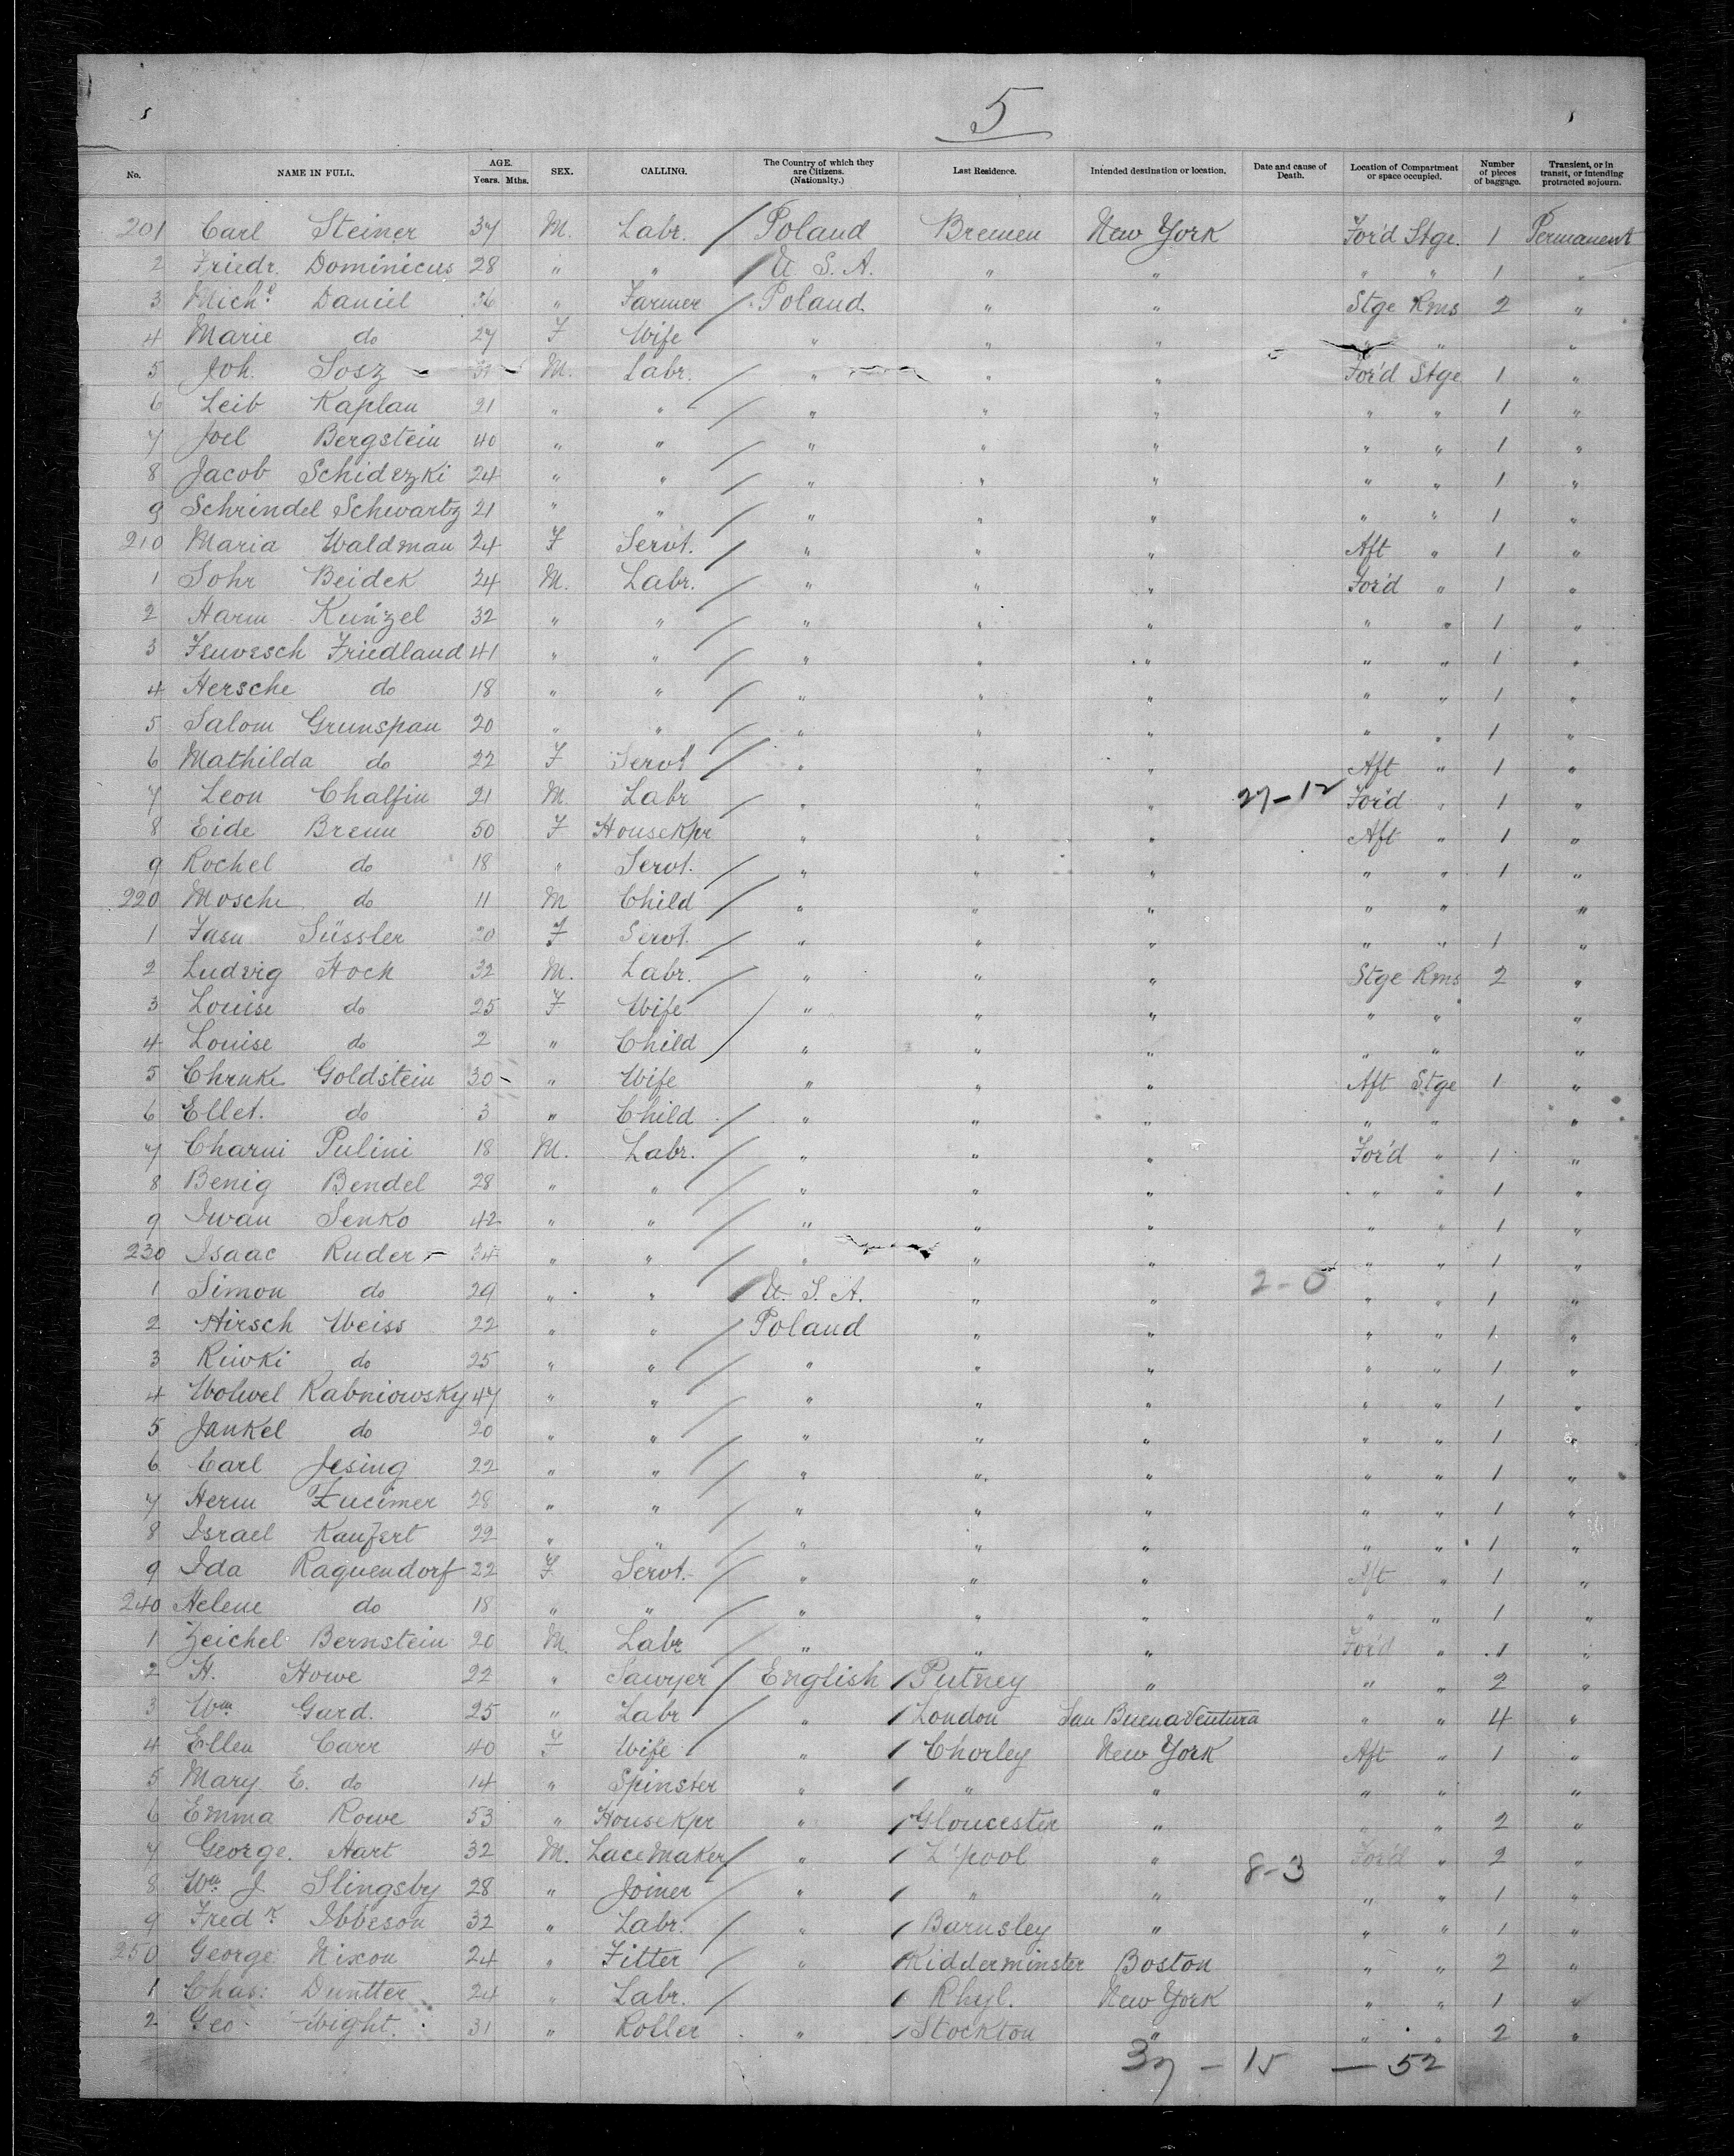 5
No. NAME IN FULL. AGE. Years. Mths. SEX. CALLING. The Country of which they are Citizens. (Nationalty.) Last Residence. Intended destination or location. Date and cause of Death. Location of Compartment or space occupied. Number of pieces of baggage. Transient, or in transit, or intending protracted sojourn.
201 Carl Steiner 37 M. Labr. / Poland Bremen New York For'd Stge. 1 Permanent
2 Friedr. Dominicus 28 " " / U. S. A. " " " " 1 "
3 Michl. Daniel 36 " Farmer / Poland " " Stge Rms 2 "
4 Marie do 27 F Wife " " " " " "
5 Joh. Sosz 31 M. Labr. / " " " For'd Stge 1 "
6 Leib Kaplan 21 " " / " " " " " 1 "
7 Joel Bergstein 40 " " / " " " " " 1 "
8 Jacob Schidezki 24 " " / " " " " " 1 "
9 Schrindel Schwartz 21 " " / " " " " " 1 "
210 Maria Waldman 24 F Servt. / " " " Aft " 1 "
1 Sohr Beidek 24 M. Labr. / " " " For'd " 1 "
2 Harm Kunzel 32 " " / " " " " " 1 "
3 Friedland 41 " " / " " " " " 1 "
4 Hersche do 18 " " / " " " " " 1 "
5 Salom Grunspan 20 " " / " " " " " 1 "
6 Mathilda do 22 F Servt / " " " Aft " 1 "
7 Leon Chalfin 21 M. Labr / " " " 27-12 For'd " 1 "
8 Eide Breun 50 F HouseKpr " " " Aft " 1 "
9 Rochel do 18 " Servt. / " " " " " 1 "
220 Mosche do 11 M Child / " " " " " "
1 Süssler 20 F Servt. / " " " " " 1 "
2 Ludwig Hock 32 M. Labr. / " " " Stge Rms 2 "
3 Louise do 25 F Wife " " " " " "
4 Louise do 2 " Child / " " " " " "
5 Chenke Goldstein 30 - " Wife " " " Aft Stge 1 "
6 Ellet. do 3 " Child / " " " " " "
7 Charni Pulini 18 M. Labr. / " " " For'd " 1 "
8 Benig Bendel 28 " " / " " " " " 1 "
9 Iwan Senko 42 " " / " " " " " 1 "
230 Isaac Ruder 34 " " / " " " " " 1 "
1 Simon do 29 " " / U. S. A. " " 2-0 " " 1 "
2 Hirsch Weiss 22 " " / Poland " " " " 1 "
3 Riwki do 25 " " / " " " " " 1 "
4 Wolwel Rabniowsky 47 " " / " " " " " 1 "
5 Jankel do 20 " " / " " " " " 1 "
6 Carl Jesing 22 " " / " " " " " 1 "
7 Herm Zucimer 28 " " / " " " " " 1 "
8 Israel Kaufert 22 " " / " " " " " 1 "
9 Ida Raquendorf 22 F Servt. / " " " Aft " 1 "
240 Helene do 18 " " / " " " " " 1 "
1 Zeichel Bernstein 20 M. Labr / " " " For'd " 1 "
2 H. Howe 22 " Sawyer / English / Putney " " " 2 "
3 Wm. Gard. 25 " Labr / " / London San Buenaventura " " 4 "
4 Ellen Carr 40 F Wife / " / Chorley New York Aft " 1 "
5 Mary E. do 14 " Spinster " / " " " " "
6 Emma Rowe 53 " HouseKpr " / Gloucester " " " 2 "
7 George. Hart 32 M. LaceMaker / " / L'pool " For'd " 2 "
8 Wm. J Slingsby 28 " Joiner / " / " " 8-3 " " 1 "
9 Fredk Ibbeson 32 " Labr. / " / Barnsley " " " 1 "
250 George Nixon 24 " Fitter / " / Kidderminster Boston " " 2 "
1 Chas: Duntter 24 " Labr. / / Rhyl. New York " " 1 "
2 Geo. Wight. 31 " Roller " / Stockton " " " 2 "
37 - 15 - 52